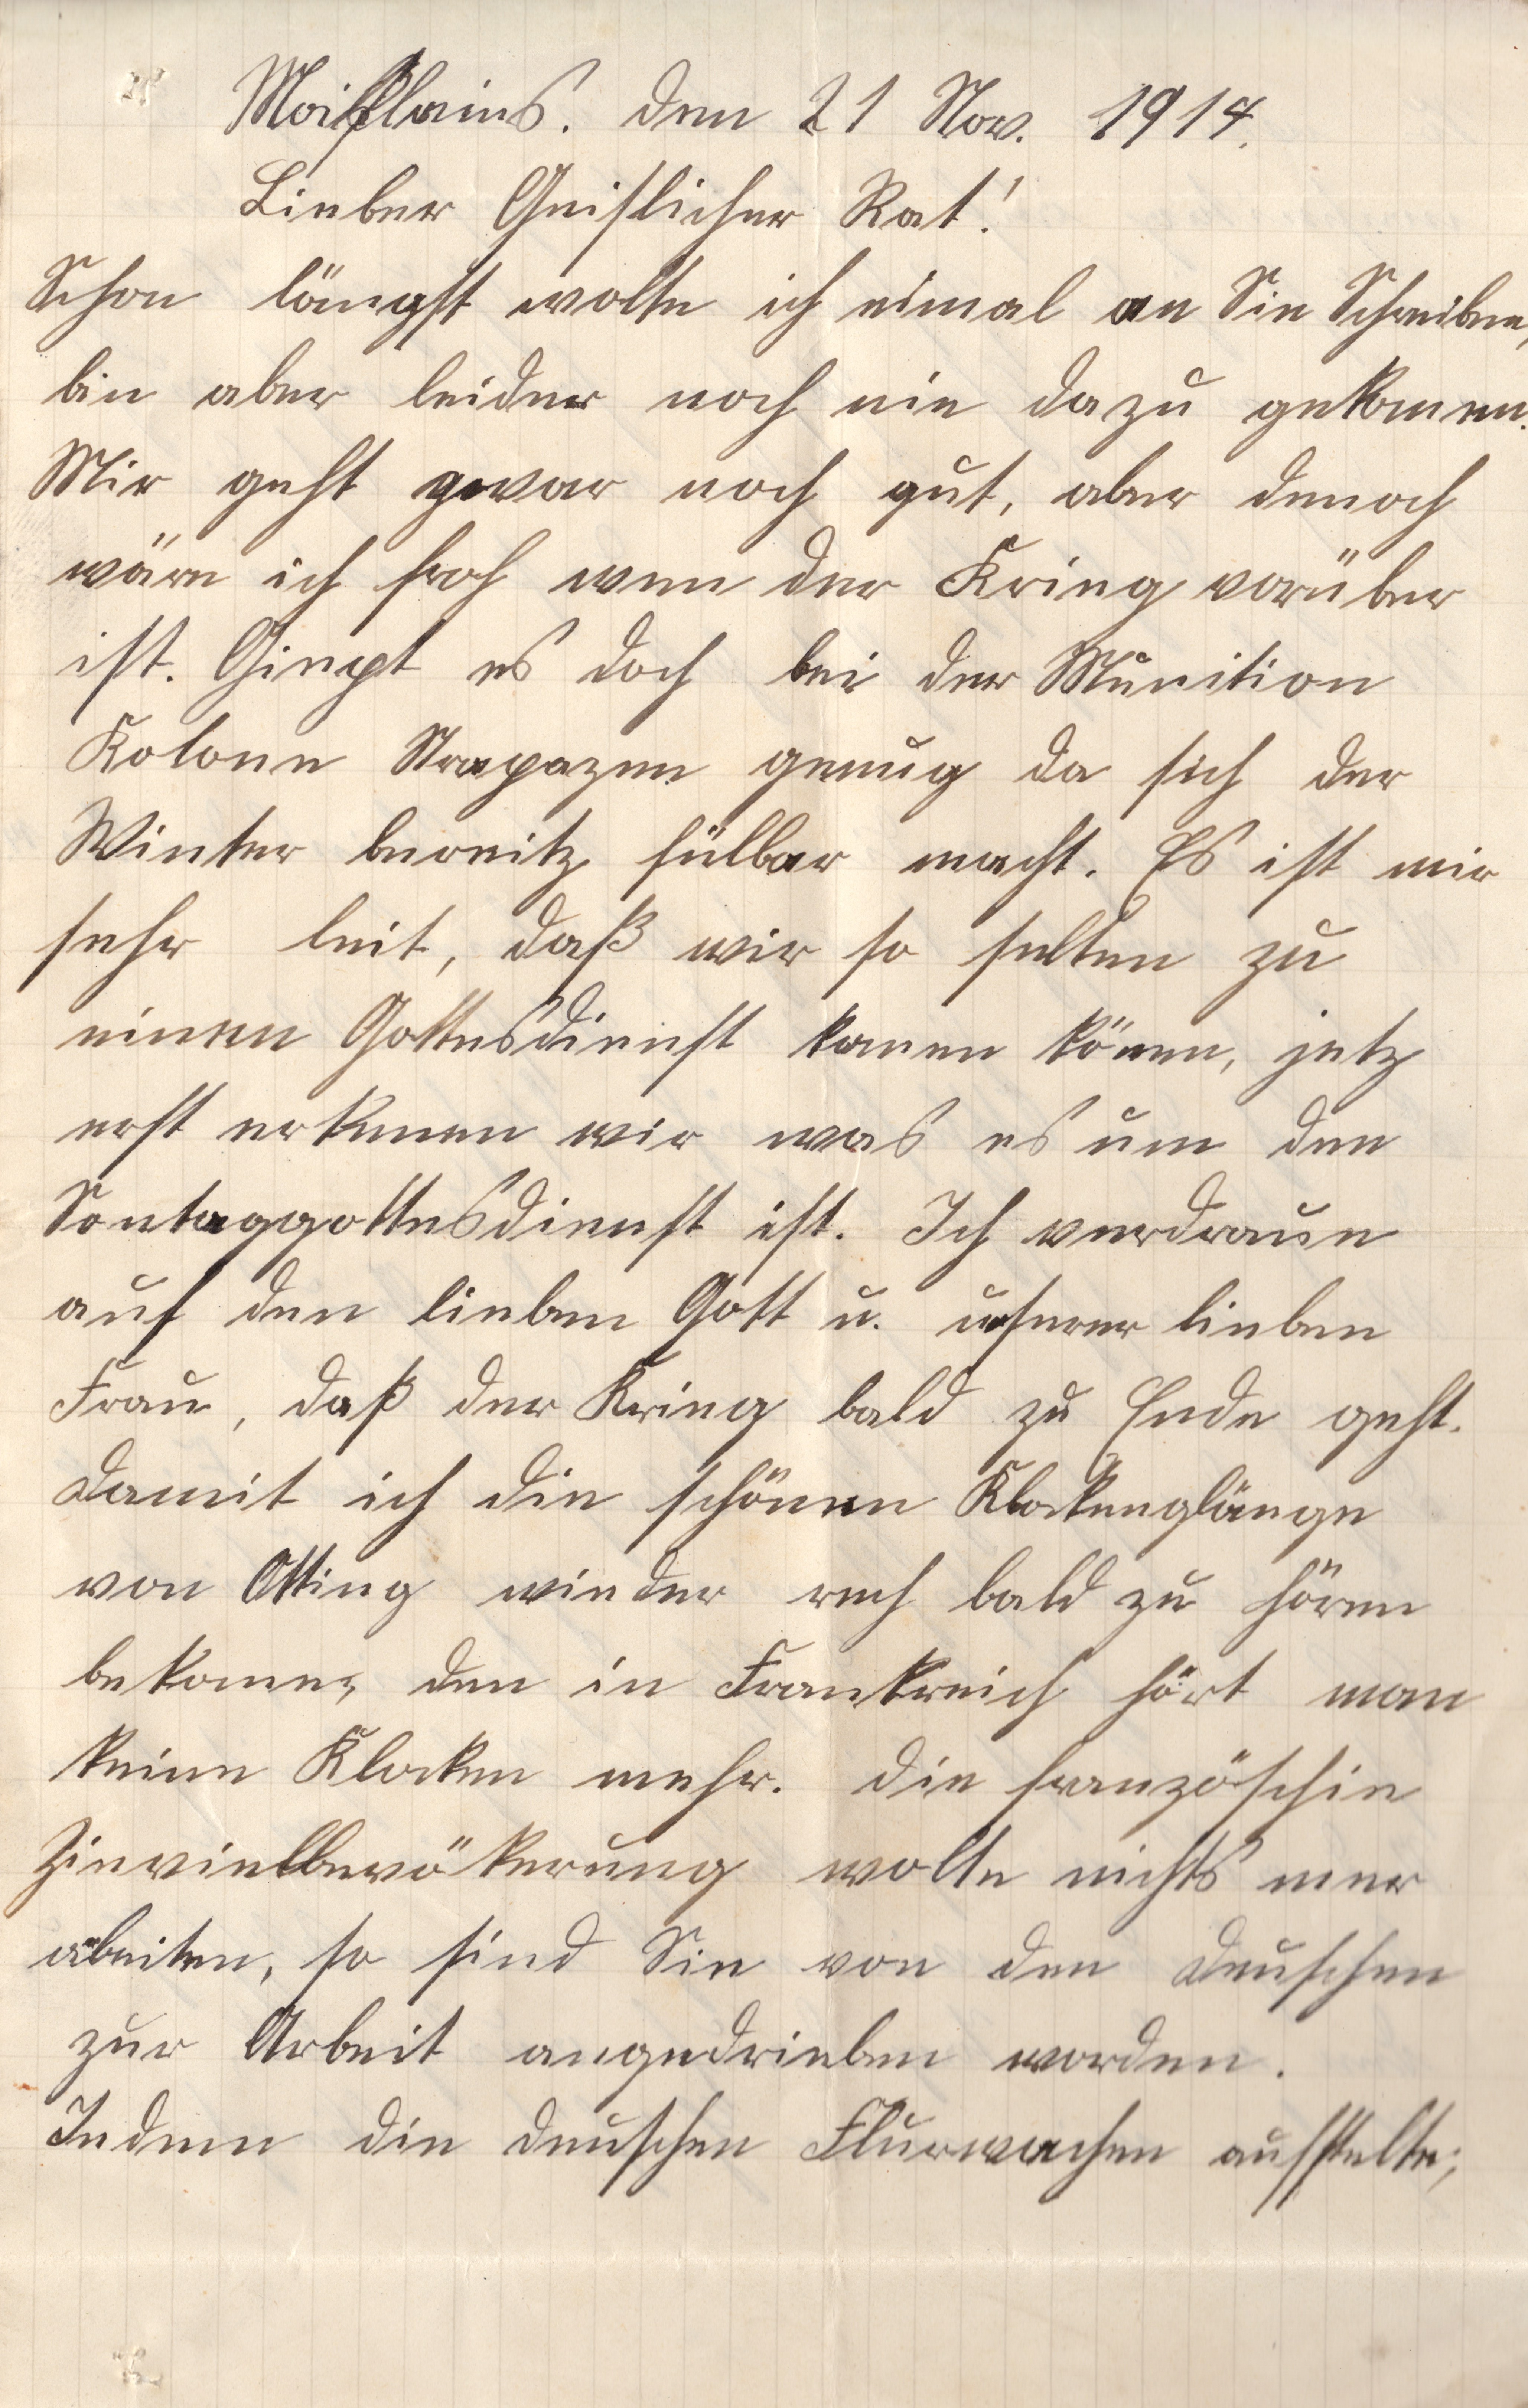 Moißlains. den 21 Nov. 1914.
Lieber Geistlicher Rat!
Schon längst wolte ich eimal an Sie Schreiben,
bin aber leider noch nie dazu gekomen.
Mir geht zwar noch gut, aber denoch
wäre ich froh wen der Krieg vorüber
ist. Giept es doch bei der Munition
Kolone Strapazen genug da sich der
Winter bereitz fülbar macht. Es ist mir
sehr leit, daß wir so selten zu
einen Gottesdienst komen könen, jetz
erst erkenen wir was es um den
Sontaggottesdienst ist. Ich verdraue
auf den lieben Gott u. unserer lieben
Frau, daß der Krieg bald zu Ende geht.
Damit ich die schönen Klockenglänge
von Otting wieder rech bald zu hören
bekome, den in Frankreich hört man
keine Klocken mehr. Die französchie
Zievielbevökerung wolte nichts mer
abeiten, so sind Sie von den Deuschen
zur Arbeit angedrieben worden.
Indem die Deuschen Flurwachen aufstelte;